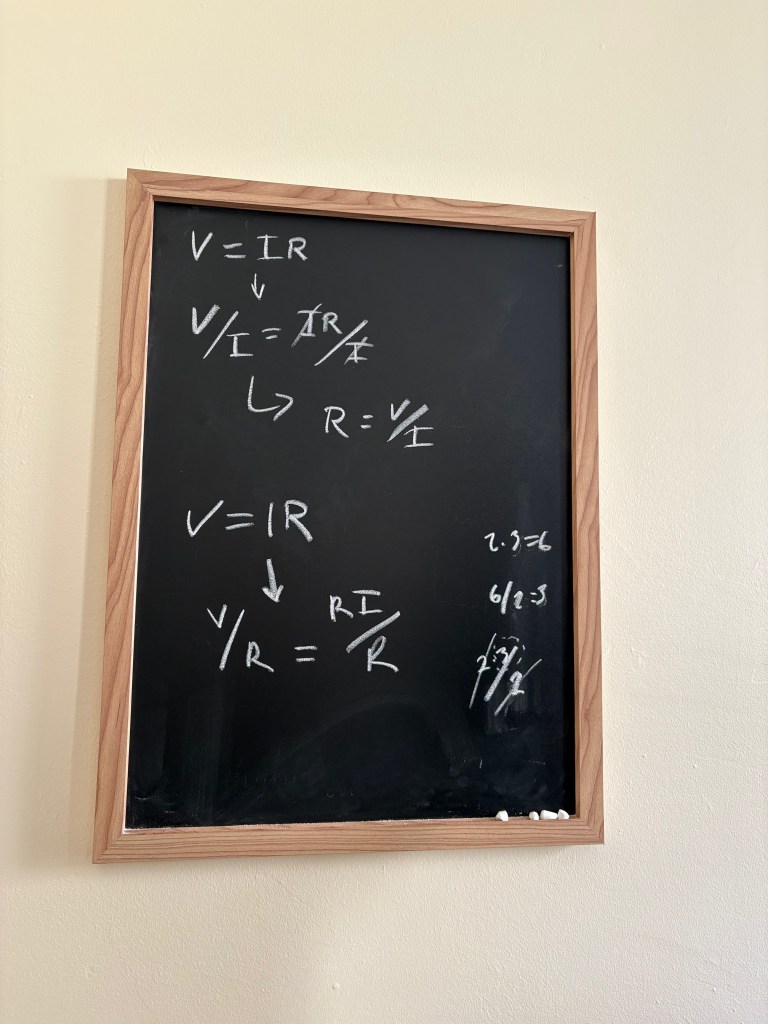 V = IR
↓
V/I = IR/I
↳ R = V/I
V = IR
↓
V/R = RI/R
2.3=6
6/2=3
2.3/2